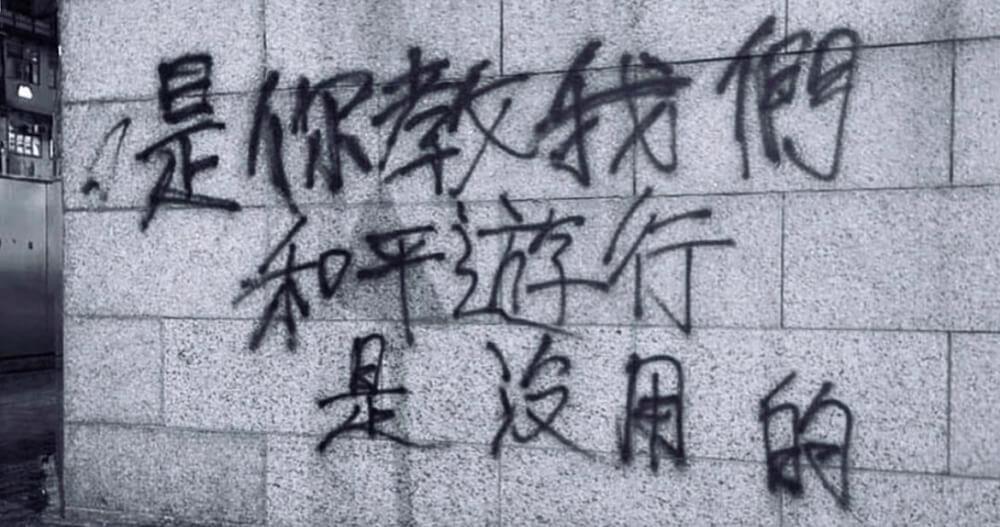 是你教我們
和平遊行
是沒用的